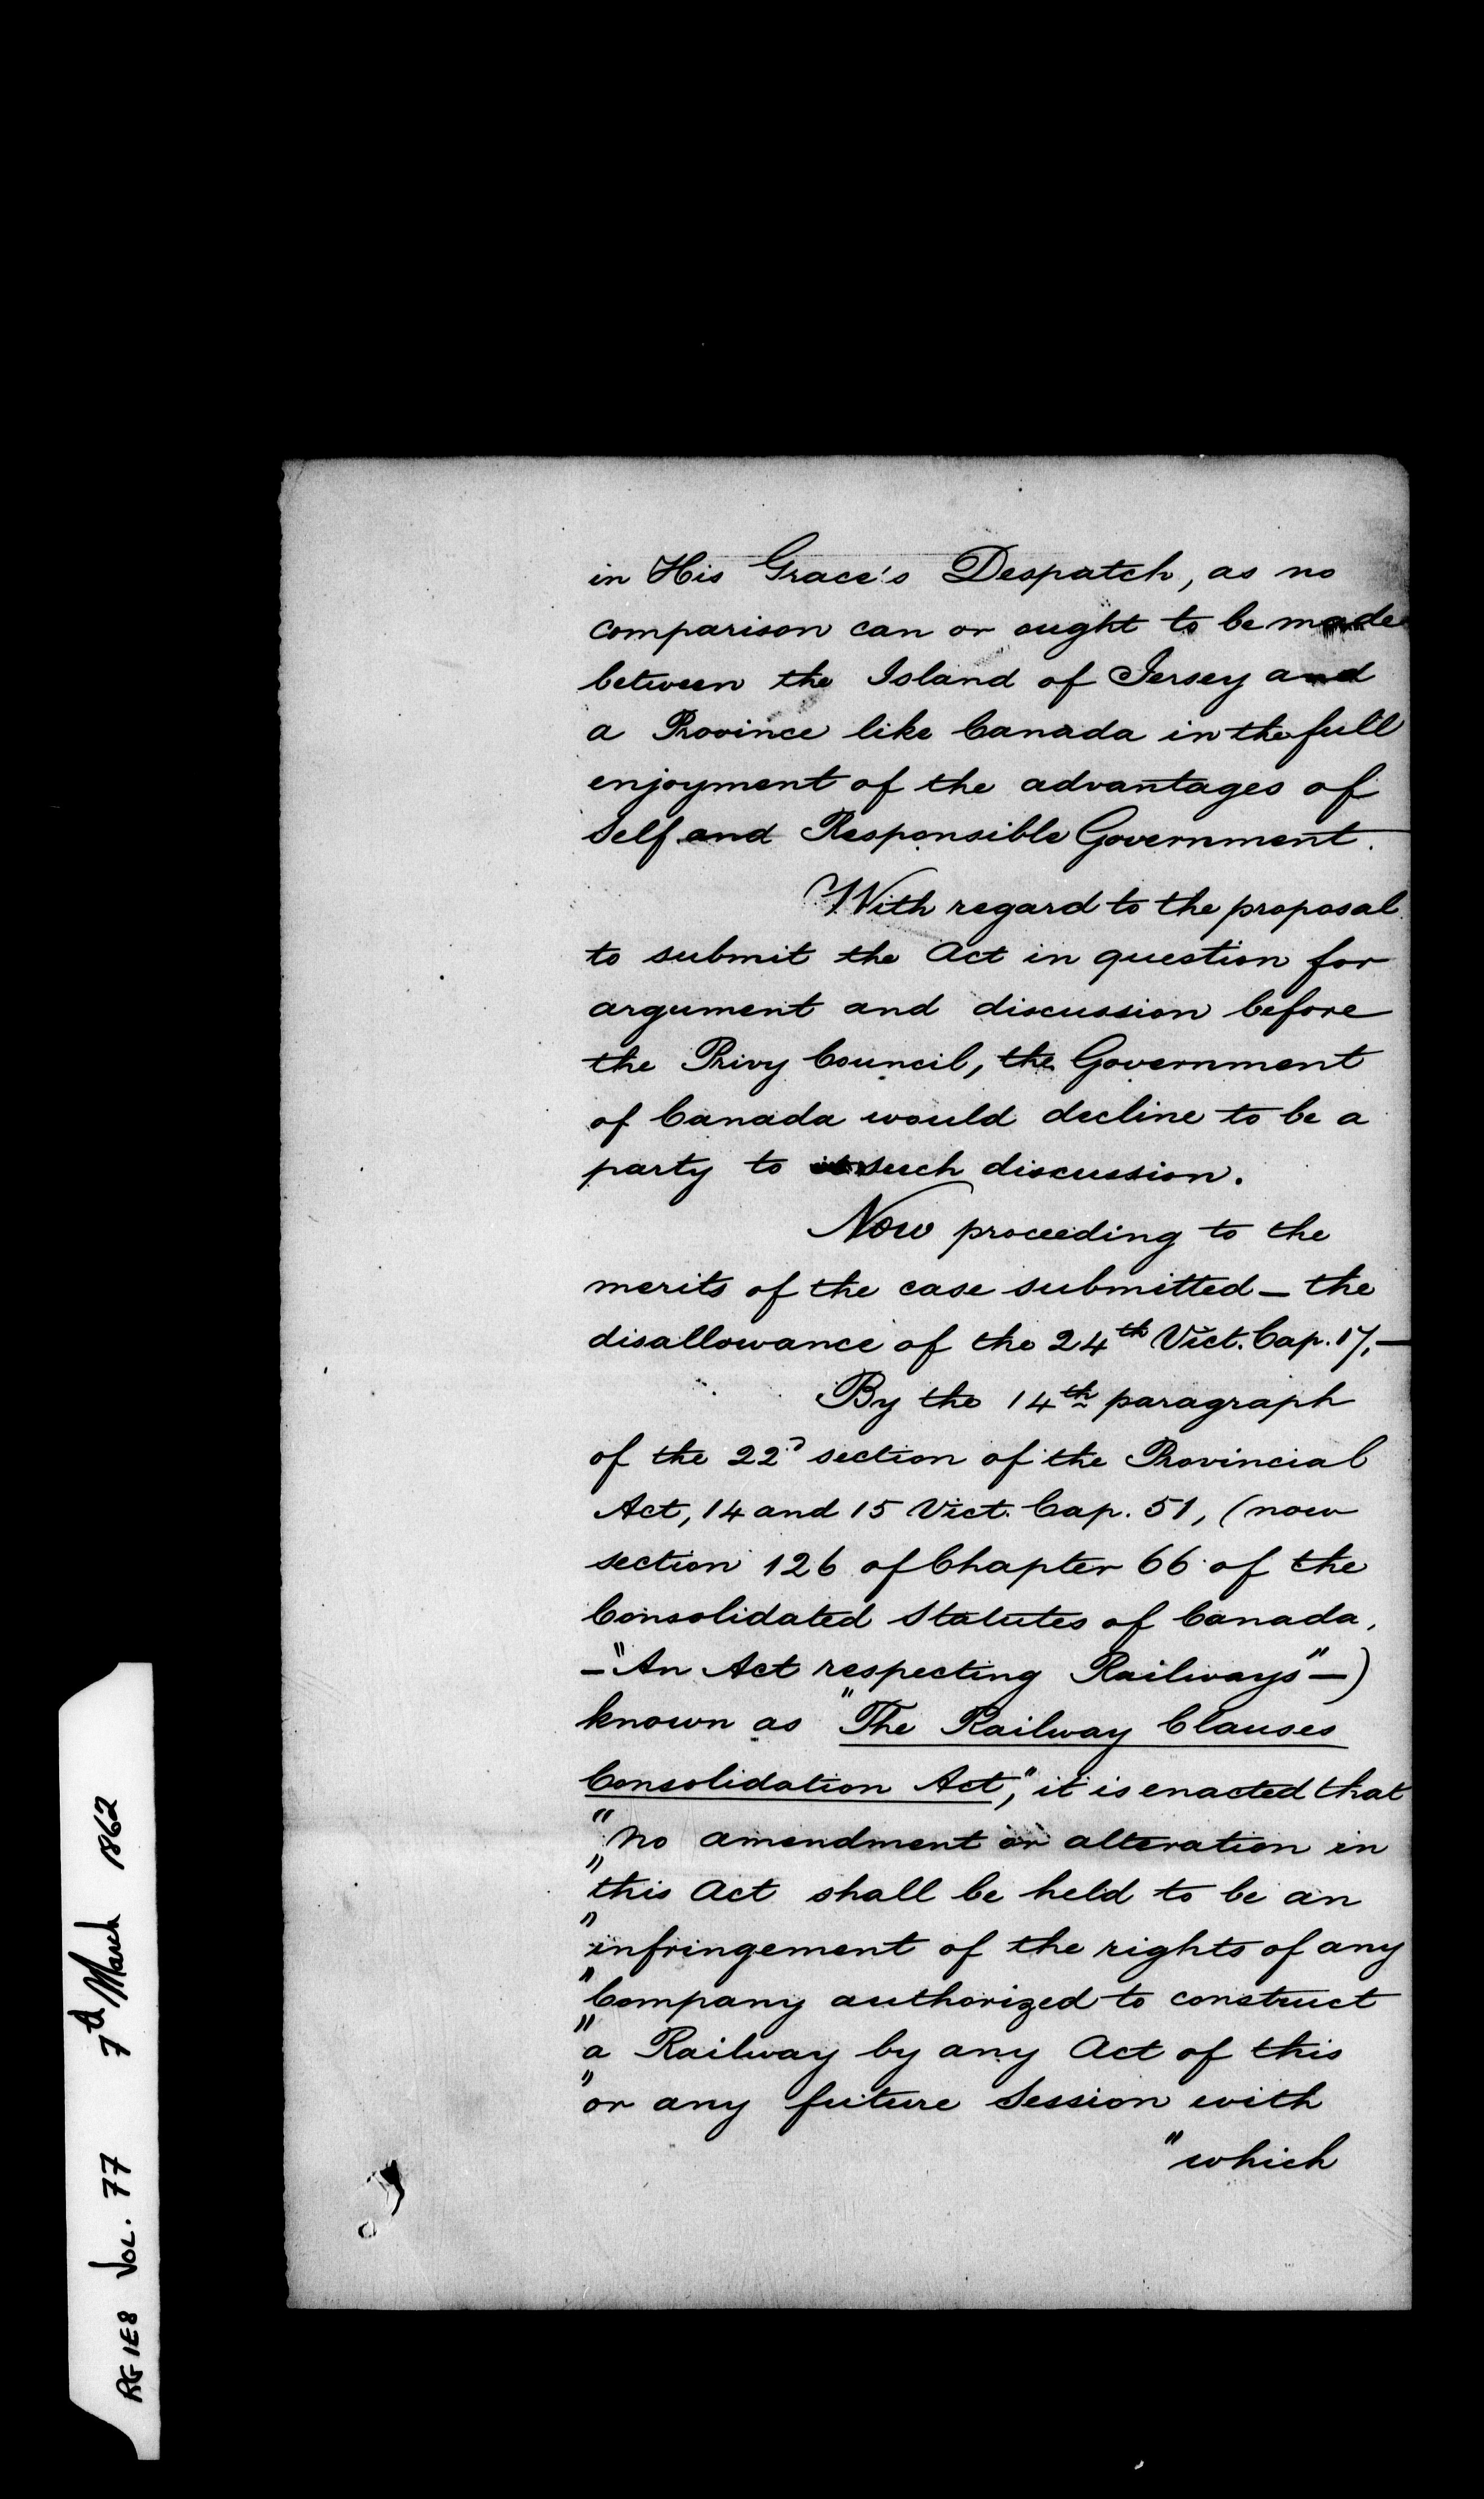 in His Grace's Despatch, as no
comparison can or ought to be made
between the Island of Jersey and
a Province like Canada in the full
enjoyment of the advantages of
Self and Responsible Government.
With regard to the proposal
to submit the Act in question for
argument and discussion before
the Privy Council, the Government
of Canada would decline to be a
party to such discussion.
Now proceeding to the
merits of the case submitted — the
disallowance of the 24th Vict. Cap. 17, —
By the 14th paragraph
of the 22d section of the Provincial
Act, 14 and 15 Vict. Cap. 51, (now
section 126 of Chapter 66 of the
Consolidated Statutes of Canada,
— "An Act respecting Railways" —)
known as "The Railway Clauses
Consolidation Act," it is enacted that
"no amendment or alteration in
"this Act shall be held to be an
"infringement of the rights of any
"Company authorized to construct
"a Railway by any Act of this
"or any future Session with
"which
RG 1E8 VOL. 77 7th March 1862